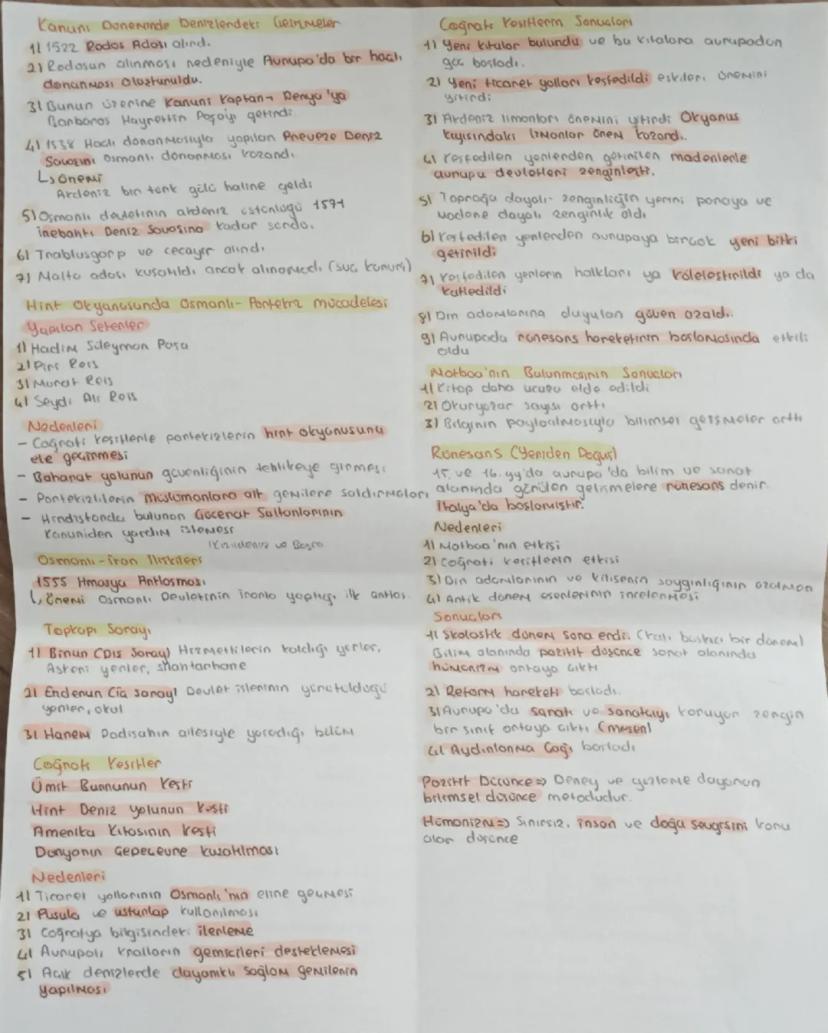 Kanuni Döneminde Denizlerdeki Gelişmeler
1) 1522 Rodos Adası alındı.
2) Rodosun alınması nedeniyle Avrupa'da bir haçlı
donanması oluşturuldu.
3) Bunun üzerine Kanuni Kaptan-ı Derya'ya
Barbaros Hayrettin Paşayı getirdi
4) 1538 Haçlı donanmasıyla yapılan Preveze Deniz
Savaşını Osmanlı donanması kazandı.
↳ önemi
Akdeniz bir türk gölü haline geldi
5) Osmanlı devletinin akdeniz üstünlüğü 1571
İnebahtı Deniz Savaşına kadar sürdü.
6) Trablusgarp ve cezayir alındı.
7) Malta adası kuşatıldı ancak alınamadı. (suç konumu)
Hint Okyanusunda Osmanlı-Portekiz mücadelesi
Yapılan Seferler
1) Hadım Süleyman Paşa
2) Piri Reis
3) Murat Reis
4) Seydi Ali Reis
Nedenleri
- Coğrafi keşiflerle portekizlerin hint okyanusunu
ele geçirmesi
- Baharat yolunun güvenliğinin tehlikeye girmesi
- Portekizlilerin müslümanlara ait gemilere saldırmaları
- Hindistanda bulunan Gücerat Sultanlarının
Kanuniden yardım istemesi
Kızıldeniz ve Basra
Osmanlı-İran İlişkileri
1555 Amasya Antlaşması
↳ önemi Osmanlı Devletinin iranla yaptığı ilk antlaş.
Topkapı Sarayı
1) Birun (Dış Saray) Hizmetlilerin kaldığı yerler,
Askeri yerler, şhantarhane
2) Enderun (iç saray) Devlet işlerinin yürütüldüğü
yerler, okul
3) Harem Padişahın ailesiyle yaşadığı bölüm
Coğrafi Keşifler
Ümit Burnunun Keşfi
Hint Deniz yolunun Keşfi
Amerika Kıtasının Keşfi
Dünyanın Çepeçevre Kuşatılması
Nedenleri
1) Ticaret yollarının Osmanlı'nın eline geçmesi
2) Pusula ve usturlap kullanılması
3) Coğrafya bilgisindeki ilerleme
4) Avrupalı kralların gemicileri desteklemesi
5) Açık denizlerde dayanıklı sağlam gemilerin
yapılması
Coğrafi Keşiflerin Sonuçları
1) Yeni kıtalar bulundu ve bu kıtalara avrupadan
göç başladı.
2) Yeni ticaret yolları keşfedildi eskileri önemini
yitirdi
3) Akdeniz limanları önemini yitirdi Okyanus
kıyısındaki limanlar önem kazandı.
4) keşfedilen yerlerden getirilen madenlerle
avrupa devletleri zenginleşti.
5) Toprağa dayalı zenginliğin yerini paraya ve
madene dayalı zenginlik aldı
6) keşfedilen yerlerden avrupaya birçok yeni bitki
getirildi
7) keşfedilen yerlerin halkları ya köleleştirildi ya da
katledildi
8) Din adamlarına duyulan güven azaldı.
9) Avrupada rönesans hareketinin başlamasında etkili
oldu
Matbaa'nın Bulunmasının Sonuçları
1) Kitap daha ucuza elde edildi
2) Okuryazar sayısı arttı
3) Bilginin paylaşılmasıyla bilimsel gelişmeler arttı
Rönesans (Yeniden Doğuş)
15. ve 16. yy'da avrupa'da bilim ve sanat
alanında görülen gelişmelere rönesans denir.
İtalya'da başlamıştır.
Nedenleri
1) Matbaa'nın etkisi
2) coğrafi keşiflerin etkisi
3) Din adamlarının ve kilisenin saygınlığının azalması
4) Antik dönem eserlerinin incelenmesi
Sonuçları
1) Skolastik dönem sona erdi. (katı baskıcı bir dönem)
Bilim alanında pozitif düşünce sanat alanında
hümanizm ortaya çıktı
2) Reform hareketi başladı.
3) Avrupa'da sanatı ve sanatkarı koruyan zengin
bir sınıf ortaya çıktı (mesen)
4) Aydınlanma Çağı başladı
Pozitif Düşünce => Deney ve gözleme dayanan
bilimsel düşünce metodudur.
Hümanizm => Sınırsız, insan ve doğa sevgisini konu
alan düşünce